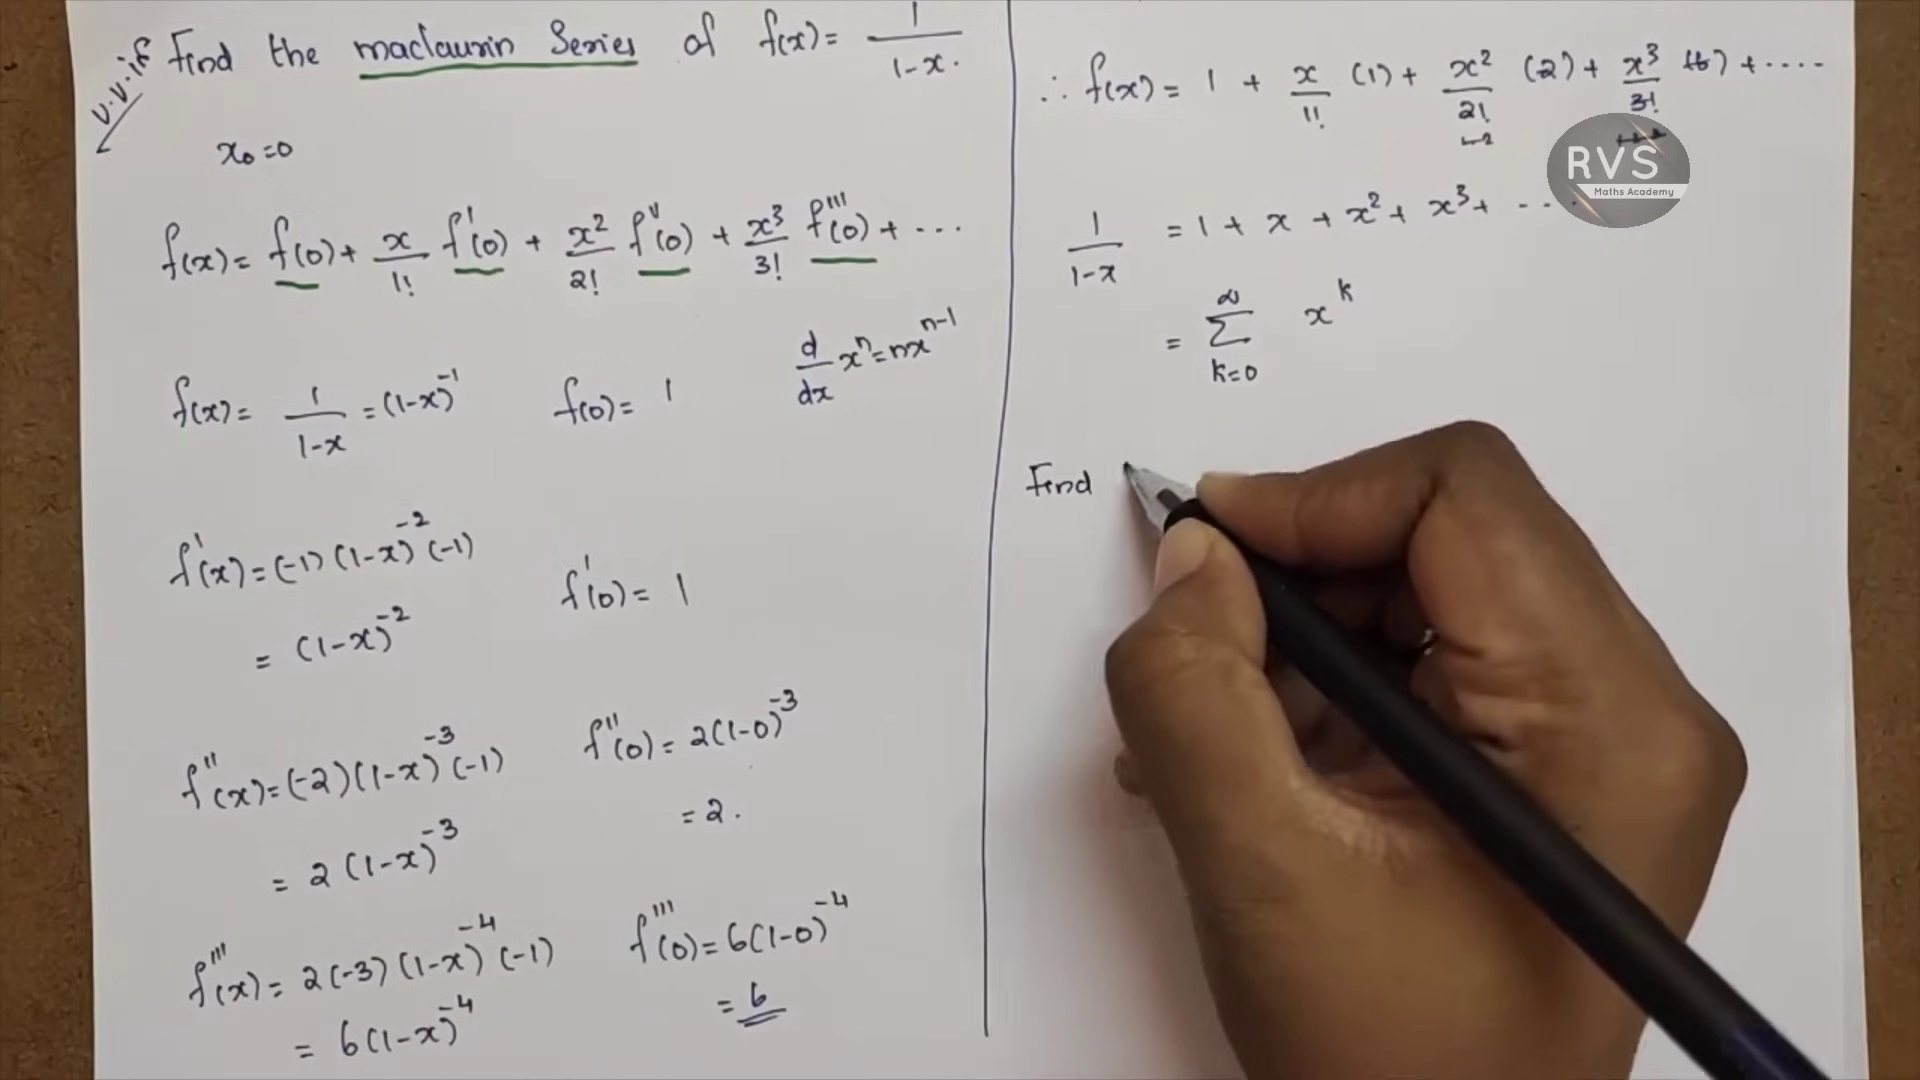 v.v.if
Find the maclaurin Series of f(x) = 1/(1-x).
x₀ = 0
f(x) = f(0) + x/1! f'(0) + x²/2! f''(0) + x³/3! f'''(0) + ...
d/dx xⁿ = nxⁿ⁻¹
f(x) = 1/(1-x) = (1-x)⁻¹ f(0) = 1
f'(x) = (-1)(1-x)⁻²(-1) f'(0) = 1
= (1-x)⁻²
f''(x) = (-2)(1-x)⁻³(-1) f''(0) = 2(1-0)⁻³
= 2(1-x)⁻³ = 2.
f'''(x) = 2(-3)(1-x)⁻⁴(-1) f'''(0) = 6(1-0)⁻⁴
= 6(1-x)⁻⁴ = 6
∴ f(x) = 1 + x/1! (1) + x²/2! (2) + x³/3! (6) + ....
RVS
Maths Academy
1/(1-x) = 1 + x + x² + x³ + ....
= ∞ Σ k=0 xᵏ
Find